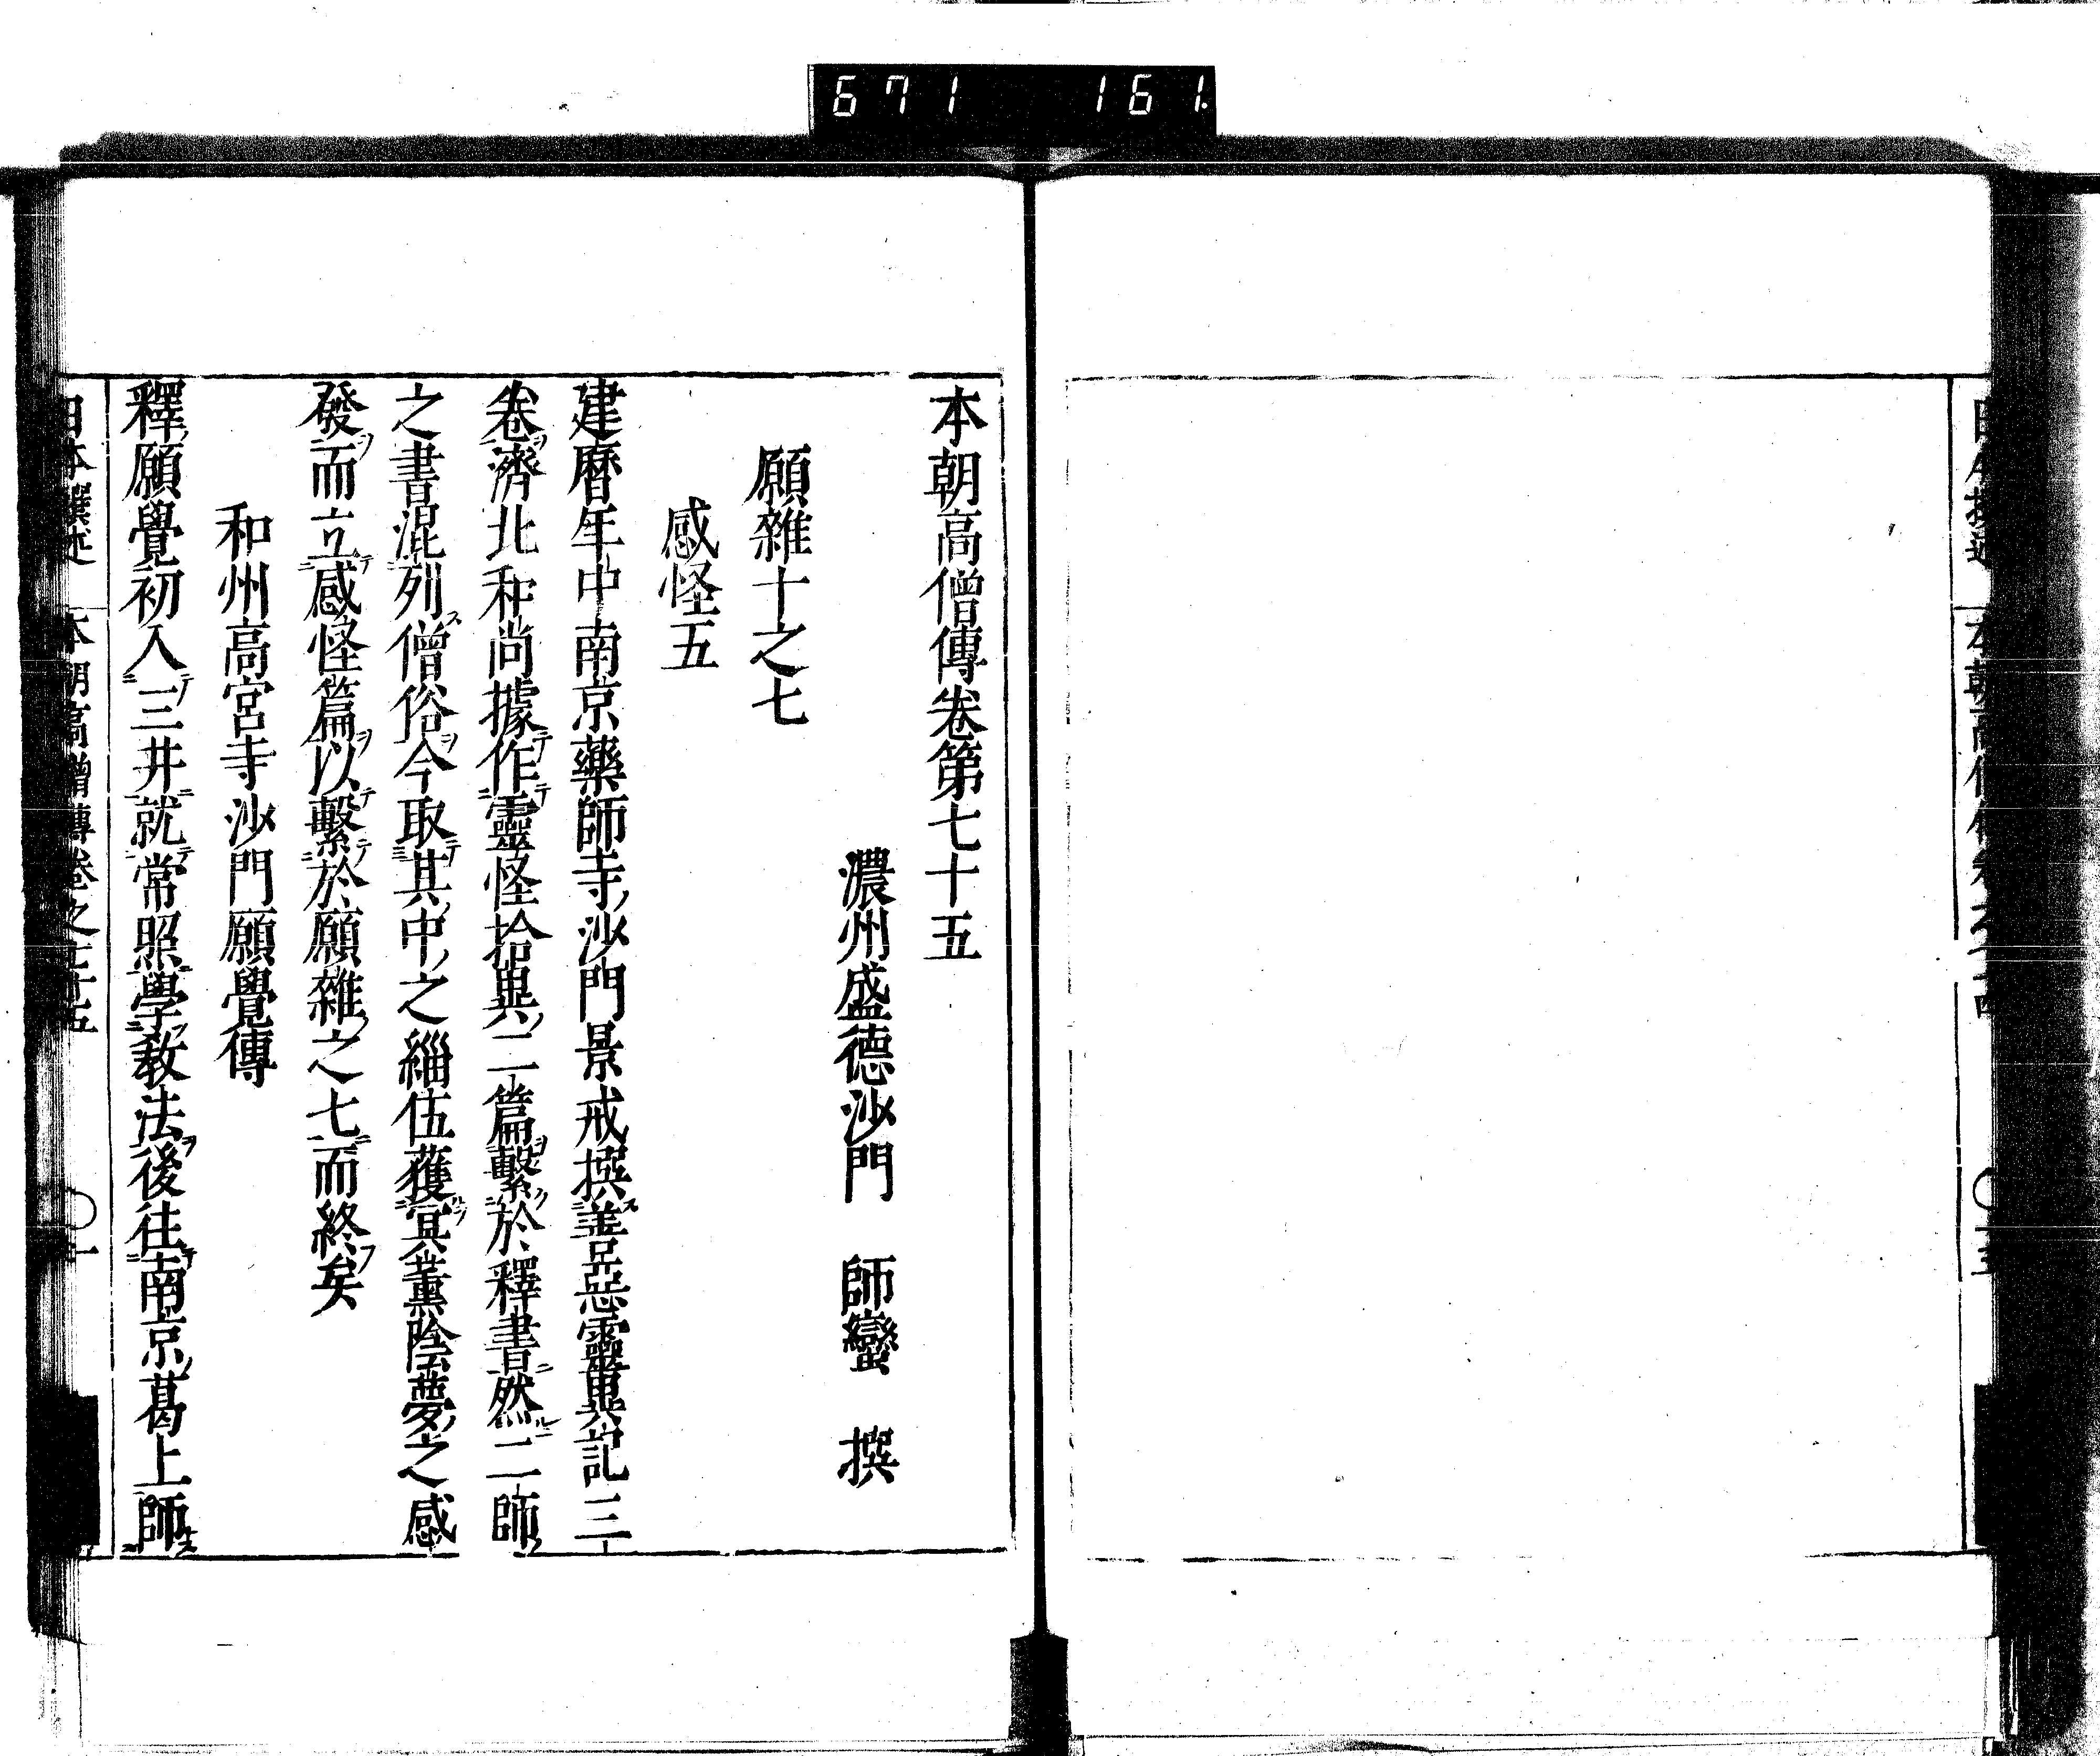 671 161
本朝高僧傳卷第七十五
濃州盛德沙門 師蠻 撰
願雜十之七
感怪五
建曆年中南京藥師寺沙門景戒撰善惡靈異記三
卷濟北和尚據作靈怪拾異二篇繫於釋書然二師
之書混列僧俗今取其中之緇伍獲冥薰陰夢之感
發而立感怪篇以繫於願雜之七而終矣
和州高宮寺沙門願覺傳
釋願覺初入三井就常照學教法後往南京葛上師
日本撰述 本朝高僧傳卷之七十五 〇一